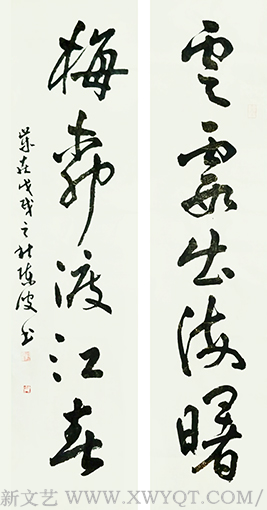 雲霞出海曙
梅柳渡江春
歲在戊戌之秋
新文艺 WWW.XWYQT.COM